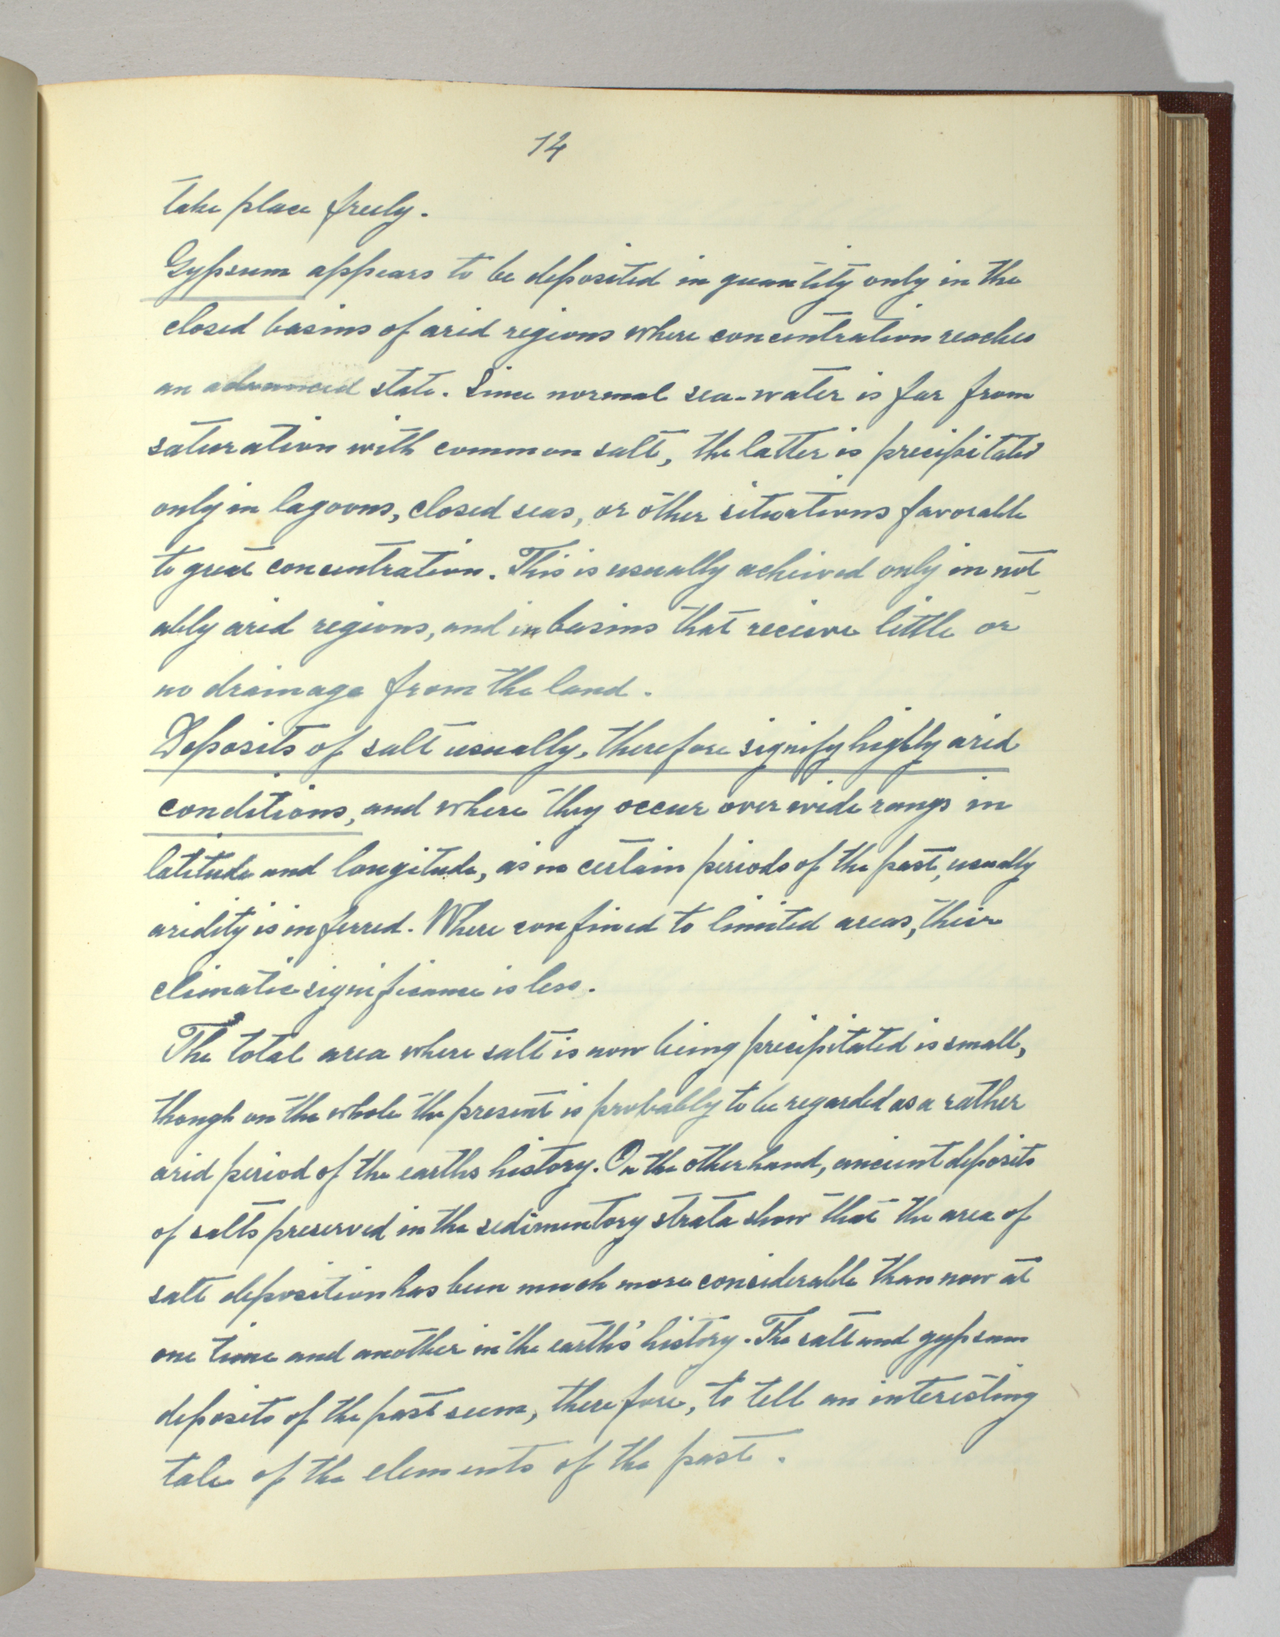 14
take place freely.
Gypsum appears to be deposited in quantity only in the
closed basins of arid regions where concentration reaches
an advanced state. Since normal sea-water is far from
saturation with common salt, the latter is precipitated
only in lagoons, closed seas, or other situations favorable
to great concentration. This is usually acheived only in not-
ably arid regions, and in basins that recieve little or
no drainage from the land.
Deposits of salt usually, therefore signify highly arid
conditions, and where they occur over wide range in
latitude and longitude, as in certain periods of the past, usually
aridity is inferred. Where confined to limited areas, their
climatic significance is less.
The total area where salt is now being precipitated is small,
though on the whole the present is probably to be regarded as a rather
arid period of the earths history. On the other hand, ancient deposits
of salts preserved in the sedimentory strata show that the area of
salt deposition has been much more considerable than now at
one time and another in the earths' history. The salt and gypsum
deposits of the past seem, therefore, to tell an interesting
tale of the elements of the past.